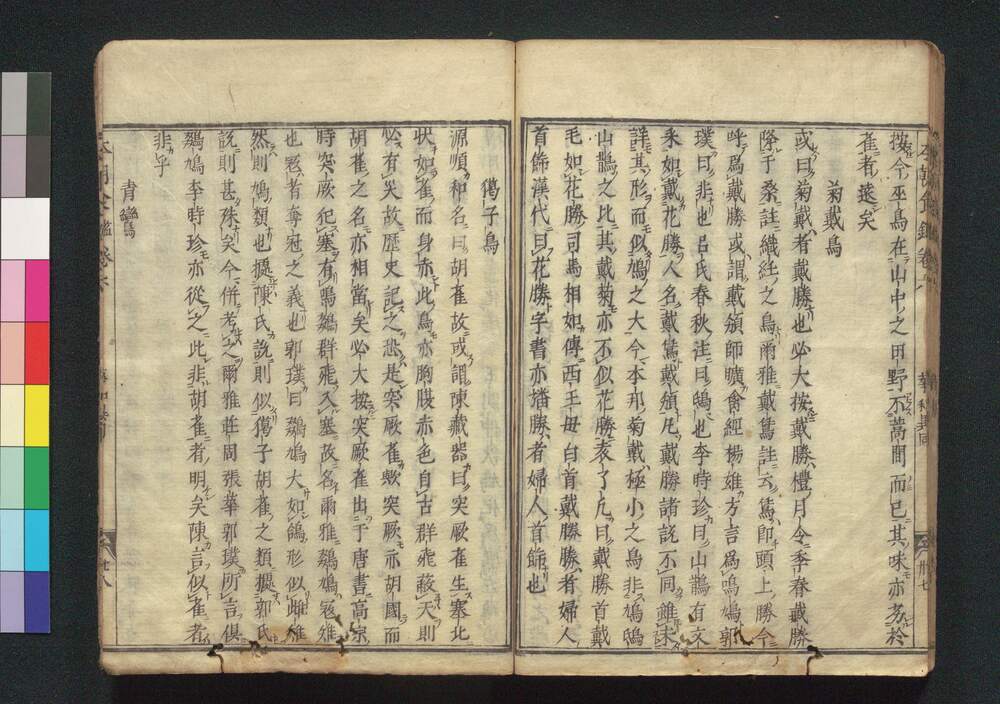 按今巫鳥在山中之田野不蒿間而已其味亦劣於
雀者遠矣
菊戴鳥
或曰菊戴者戴勝也必大按戴勝禮月令季春戴勝
降于桑註織紝之鳥爾雅戴鵀註云鵀即頭上勝今
呼為戴勝或謂戴頒師曠禽經楊雄方言為鳴鳩郭
璞曰非也呂氏春秋注曰鴟也李時珍曰山鵲有文
采如戴花勝人名戴鵀戴頒凡戴勝諸説不同雖未
詳其形而似鳩之大今本邦菊戴極小之鳥非鳩鴟
山鵲之比其戴菊亦不似花勝表了了凡曰戴勝首戴
毛如花勝司馬相如傳西王母白首戴勝勝者婦人
首飾漢代曰花勝字書亦媠勝者婦人首飾也
鳥
源順和名曰胡雀故或謂陳藏器曰突厥雀生塞北
状如雀而身赤此鳥亦胸腹赤色自古群飛蔽天則
必有災故歴史記之恐是突厥雀歟突厥亦胡國而
胡雀之名亦相當矣必大按突厥雀出于唐書高宗
時突厥犯塞有鳴鵽群飛入塞故名爾雅鵽鳩寇雉
也寇者奪冠之義也郭璞曰鵽鳩大如鴿形似雌雉
然則鳩類也據陳氏說則似子胡雀之類據郭氏
説則甚殊矣今併考之爾雅莊周張華郭璞所言俱
鵽鳩李時珍亦從之此非胡雀者明矣陳言似雀者
非乎